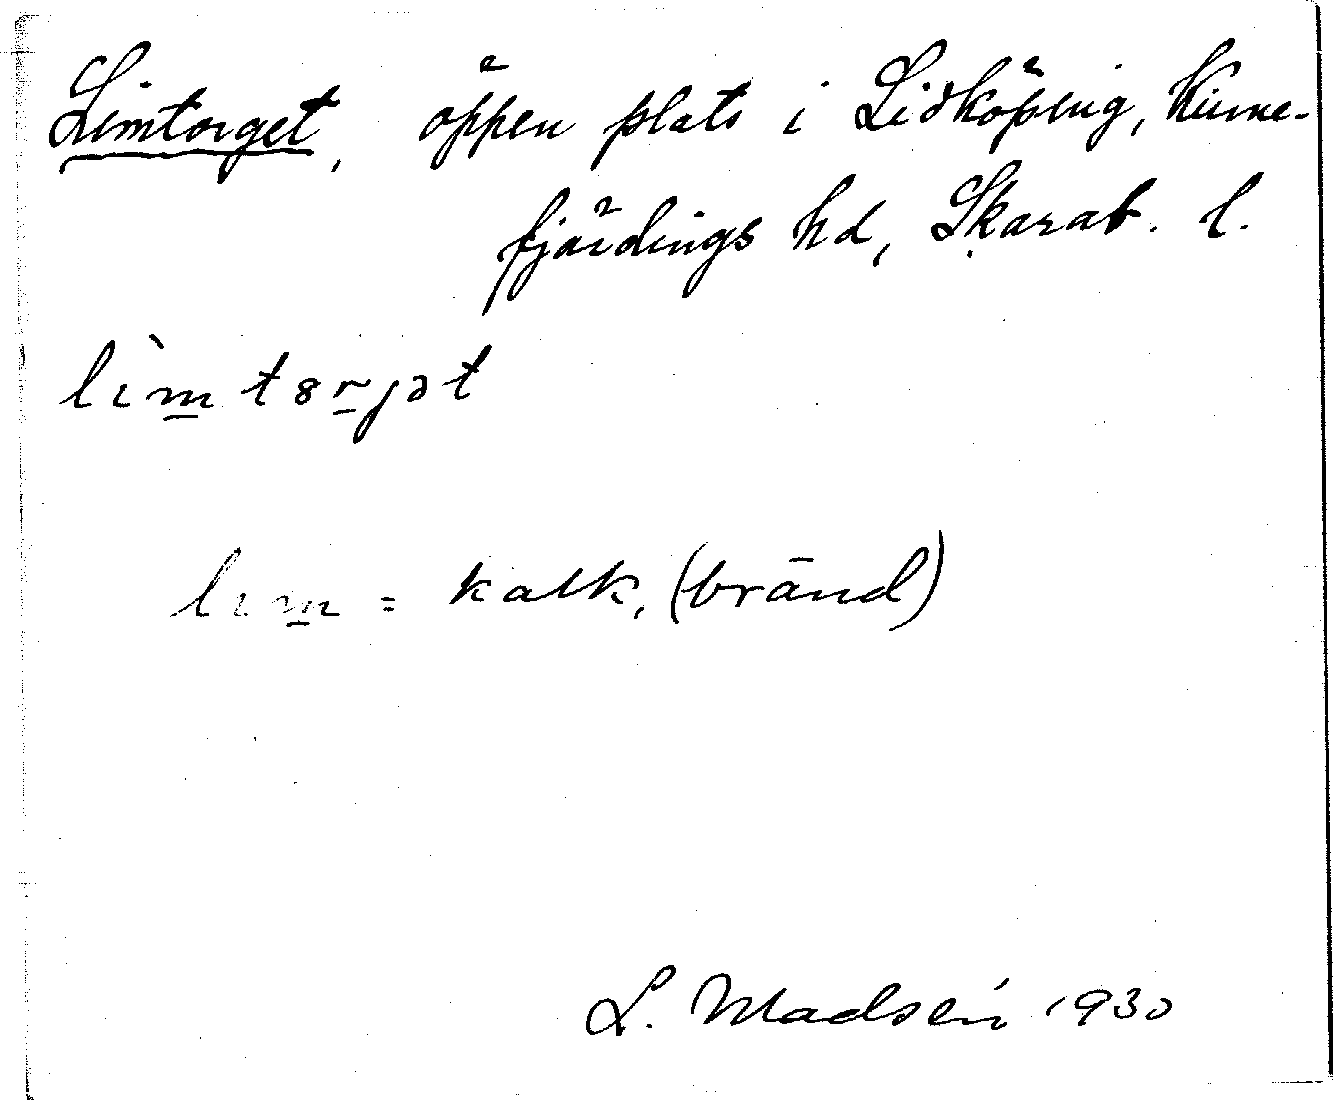 Limtorget, öppen plats i Lidköping, Kinne-
fjärdings hd, Skarab. l.
lìm̲t8r̲jət
lım̲ = kalk, (bränd)
L. Madsén 1930